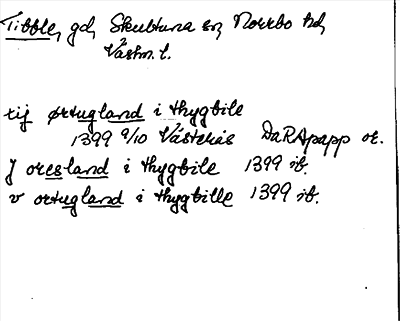 Tibble, gd, Skultuna sn, Norrbo hd,
Västm. l.
xij ørtugland i thygbile
1399 9/10 Västerås DaRApapp or.
J oresland i thygbile 1399 ib.
v ortugland i thygbille 1399 ib.